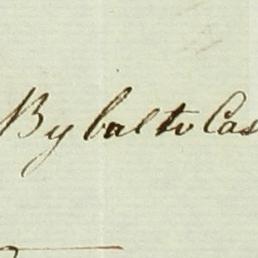 By bal to Cas